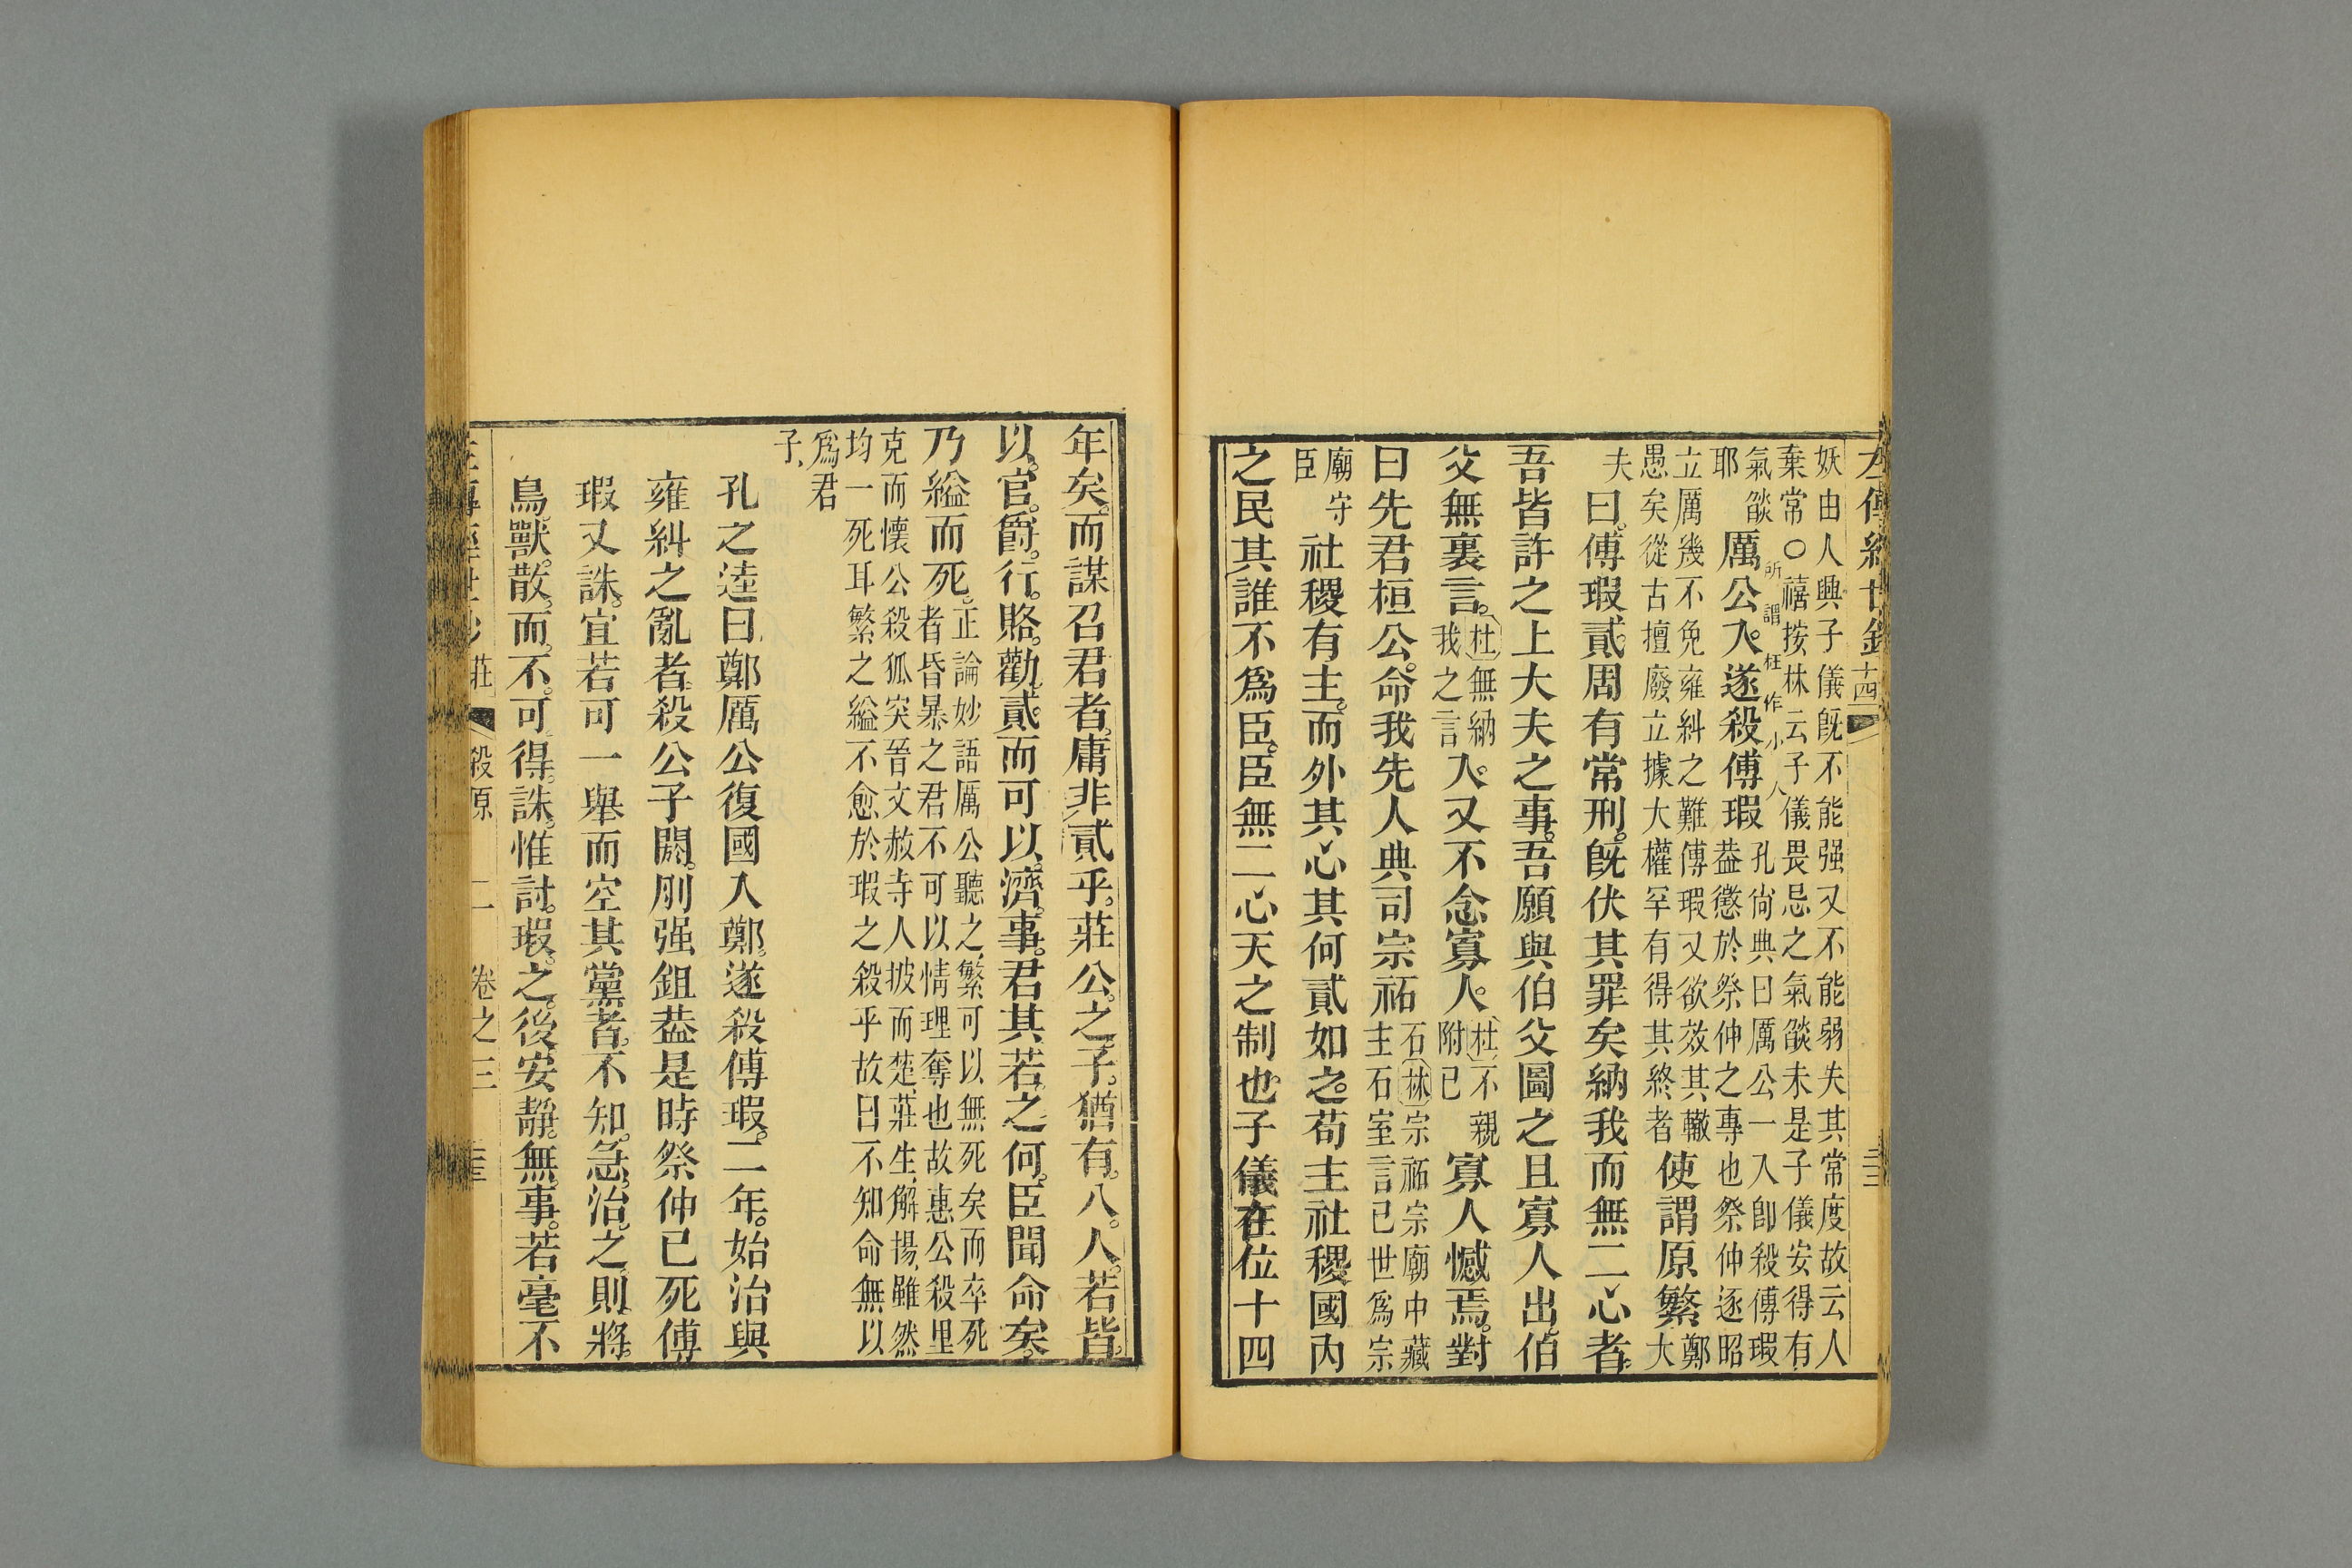 妖由人興子儀旣不能强又不能弱失其常度故云人
棄常○禧按林云子儀畏忌之氣燄未是子儀安得有
氣燄
耶
厲公入遂殺傅瑕
所謂枉作小人
孔尙典曰厲公一入卽殺傅瑕
葢懲於祭仲之專也祭仲逐昭
立厲幾不免雍糾之難傅瑕又欲效其轍
愚矣從古擅廢立據大權罕有得其終者
使謂原繁
鄭大
夫
曰傅瑕貳周有常刑旣伏其罪矣納我而無二心者
吾皆許之上大夫之事吾願與伯父圖之且寡人出伯
父無裏言
杜無納
我之言
入又不念寡人
杜不親
附已
寡人憾焉對
曰先君桓公命我先人典司宗祏
石林宗祏宗廟中藏
主石室言已世爲宗
廟守
臣
社稷有主而外其心其何貳如之苟主社稷國內
之民其誰不爲臣臣無二心天之制也子儀在位十四
年矣而謀召君者庸非貳乎莊公之子猶有八人若皆
以官爵行賂勸貳而可以濟事君其若之何臣聞命矣
乃縊而死
正論妙語厲公聽之繁可以無死矣而卒死
者昏暴之君不可以情理奪也故惠公殺里
克而懷公殺狐突晉文赦寺人披而楚莊生解揚雖然
均一死耳繁之縊不愈於瑕之殺乎故曰不知命無以
爲君
子
孔之逵曰鄭厲公復國入鄭遂殺傅瑕二年始治與
雍糾之亂者殺公子閼刖强鉏葢是時祭仲已死傅
瑕又誅宜若可一舉而空其黨者不知急治之則將
鳥獸散而不可得誅惟討瑕之後安靜無事若毫不
莊
殺原
二
卷之三